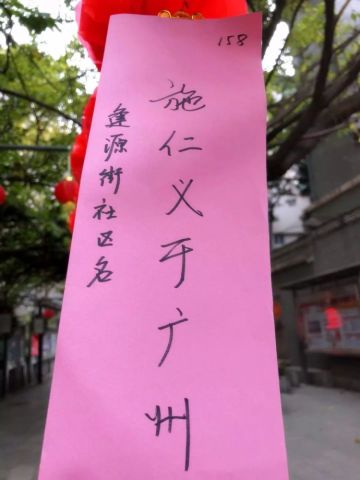 158
施仁义于广州
逢源街社区名